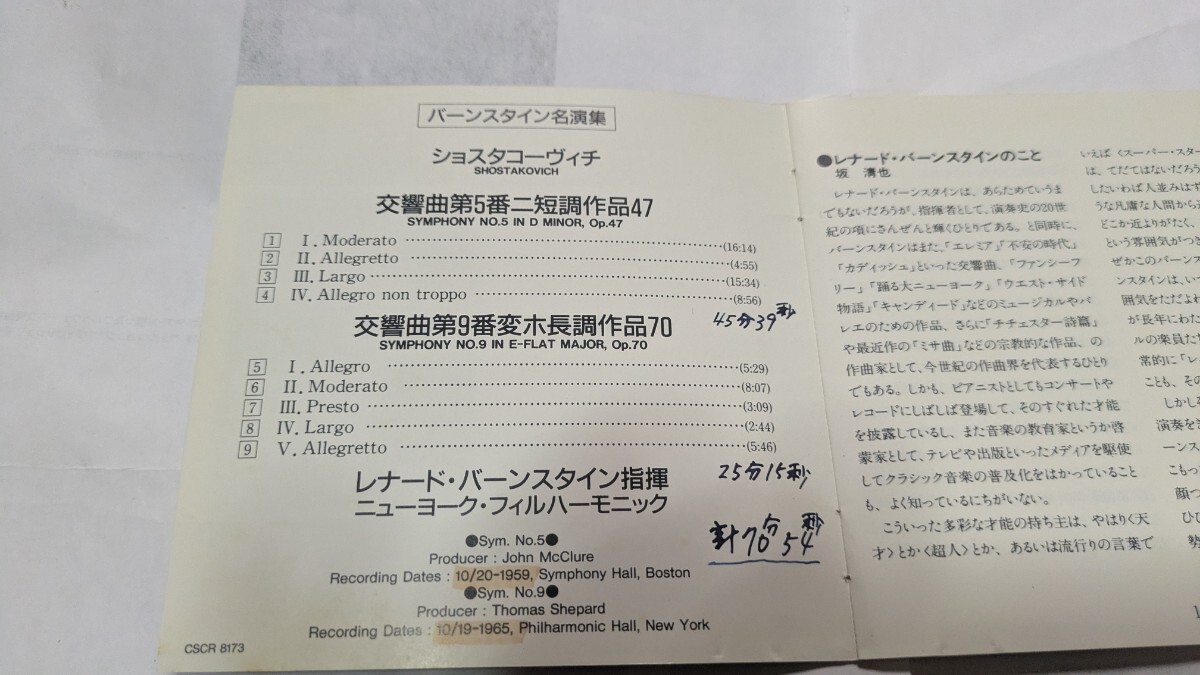 バーンスタイン名演集
ショスタコーヴィチ
SHOSTAKOVICH
交響曲第5番ニ短調作品47
SYMPHONY NO.5 IN D MINOR, Op.47
1 I. Moderato (16:14)
2 II. Allegretto (4:55)
3 III. Largo (15:34)
4 IV. Allegro non troppo (8:56)
45分39秒
交響曲第9番変ホ長調作品70
SYMPHONY NO.9 IN E-FLAT MAJOR, Op.70
5 I. Allegro (5:29)
6 II. Moderato (8:07)
7 III. Presto (3:09)
8 IV. Largo (2:44)
9 V. Allegretto (5:46)
25分15秒
レナード・バーンスタイン指揮
ニューヨーク・フィルハーモニック
計70分54秒
●Sym. No.5●
Producer : John McClure
Recording Dates : 10/20-1959, Symphony Hall, Boston
●Sym. No.9●
Producer : Thomas Shepard
Recording Dates : 10/19-1965, Philharmonic Hall, New York
CSCR 8173
●レナード・バーンスタインのこと
坂 清也
レナード・バーンスタインは、あらためていうま
でもないだろうが、指揮者として、演奏史の20世
紀の項にさんぜんと輝くひとりである。と同時に、
バーンスタインはまた、「エレミア」「不安の時代」
「カディッシュ」といった交響曲、「ファンシーフ
リー」「踊る大ニューヨーク」「ウエスト・サイド
物語」「キャンディード」などのミュージカルやバ
レエのための作品、さらに「チチェスター詩篇」
や最近作の「ミサ曲」などの宗教的な作品、の
作曲家として、今世紀の作曲界を代表するひとり
でもある。しかも、ピアニストとしてもコンサートや
レコードにしばしば登場して、そのすぐれた才能
を披露しているし、また音楽の教育家というか啓
蒙家として、テレビや出版といったメディアを駆使
してクラシック音楽の普及化をはかっていること
も、よく知っているにちがいない。
こういった多彩な才能の持ち主は、やはり〈天
才〉とか〈超人〉とか、あるいは流行りの言葉で
いえば〈スーパー・スター
は、てだてはないだろう
したいわば人並みはず
うな凡庸な人間から
どこか近よりがたく、
という雰囲気がつき
ぜかこのバーンス
ンスタインは、いつ
囲気をただよわ
が長年にわた
ルの楽員たち
常的に「レ
ことも、その
しかしな
演奏を
ーンス
こもっ
顔つ
ひび
勢